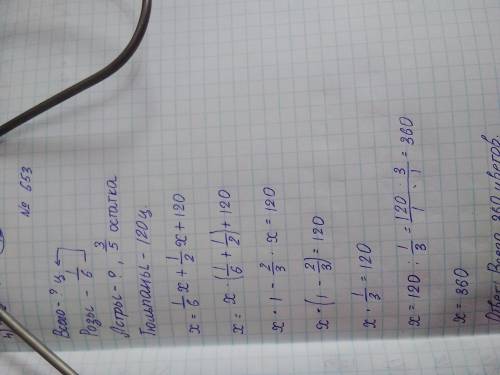 № 653
Всего - ? ц
Розы - 1/6
Астры - ?, 3/5 остатка
Тюльпаны - 120 ц
x = 1/6 x + 1/2 x + 120
x = x · (1/6 + 1/2) + 120
x · 1 - 2/3 · x = 120
x · (1 - 2/3) = 120
x · 1/3 = 120
x = 120 : 1/3 = 120/1 · 3/1 = 360
x = 360
Ответ: Всего 360 цветов